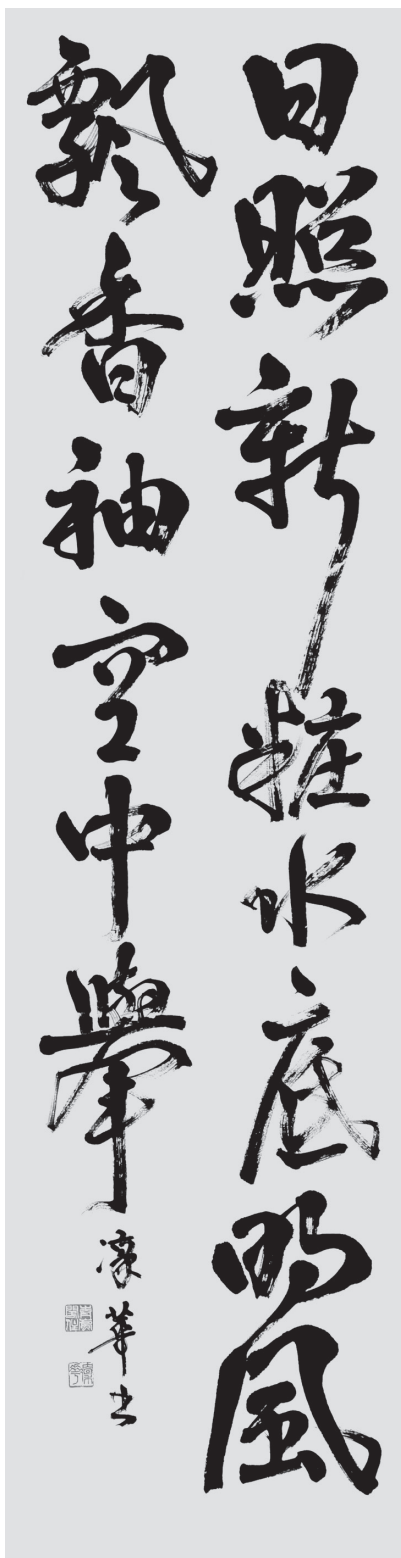 日照新粧水底明風
飄香袖空中舉
華書